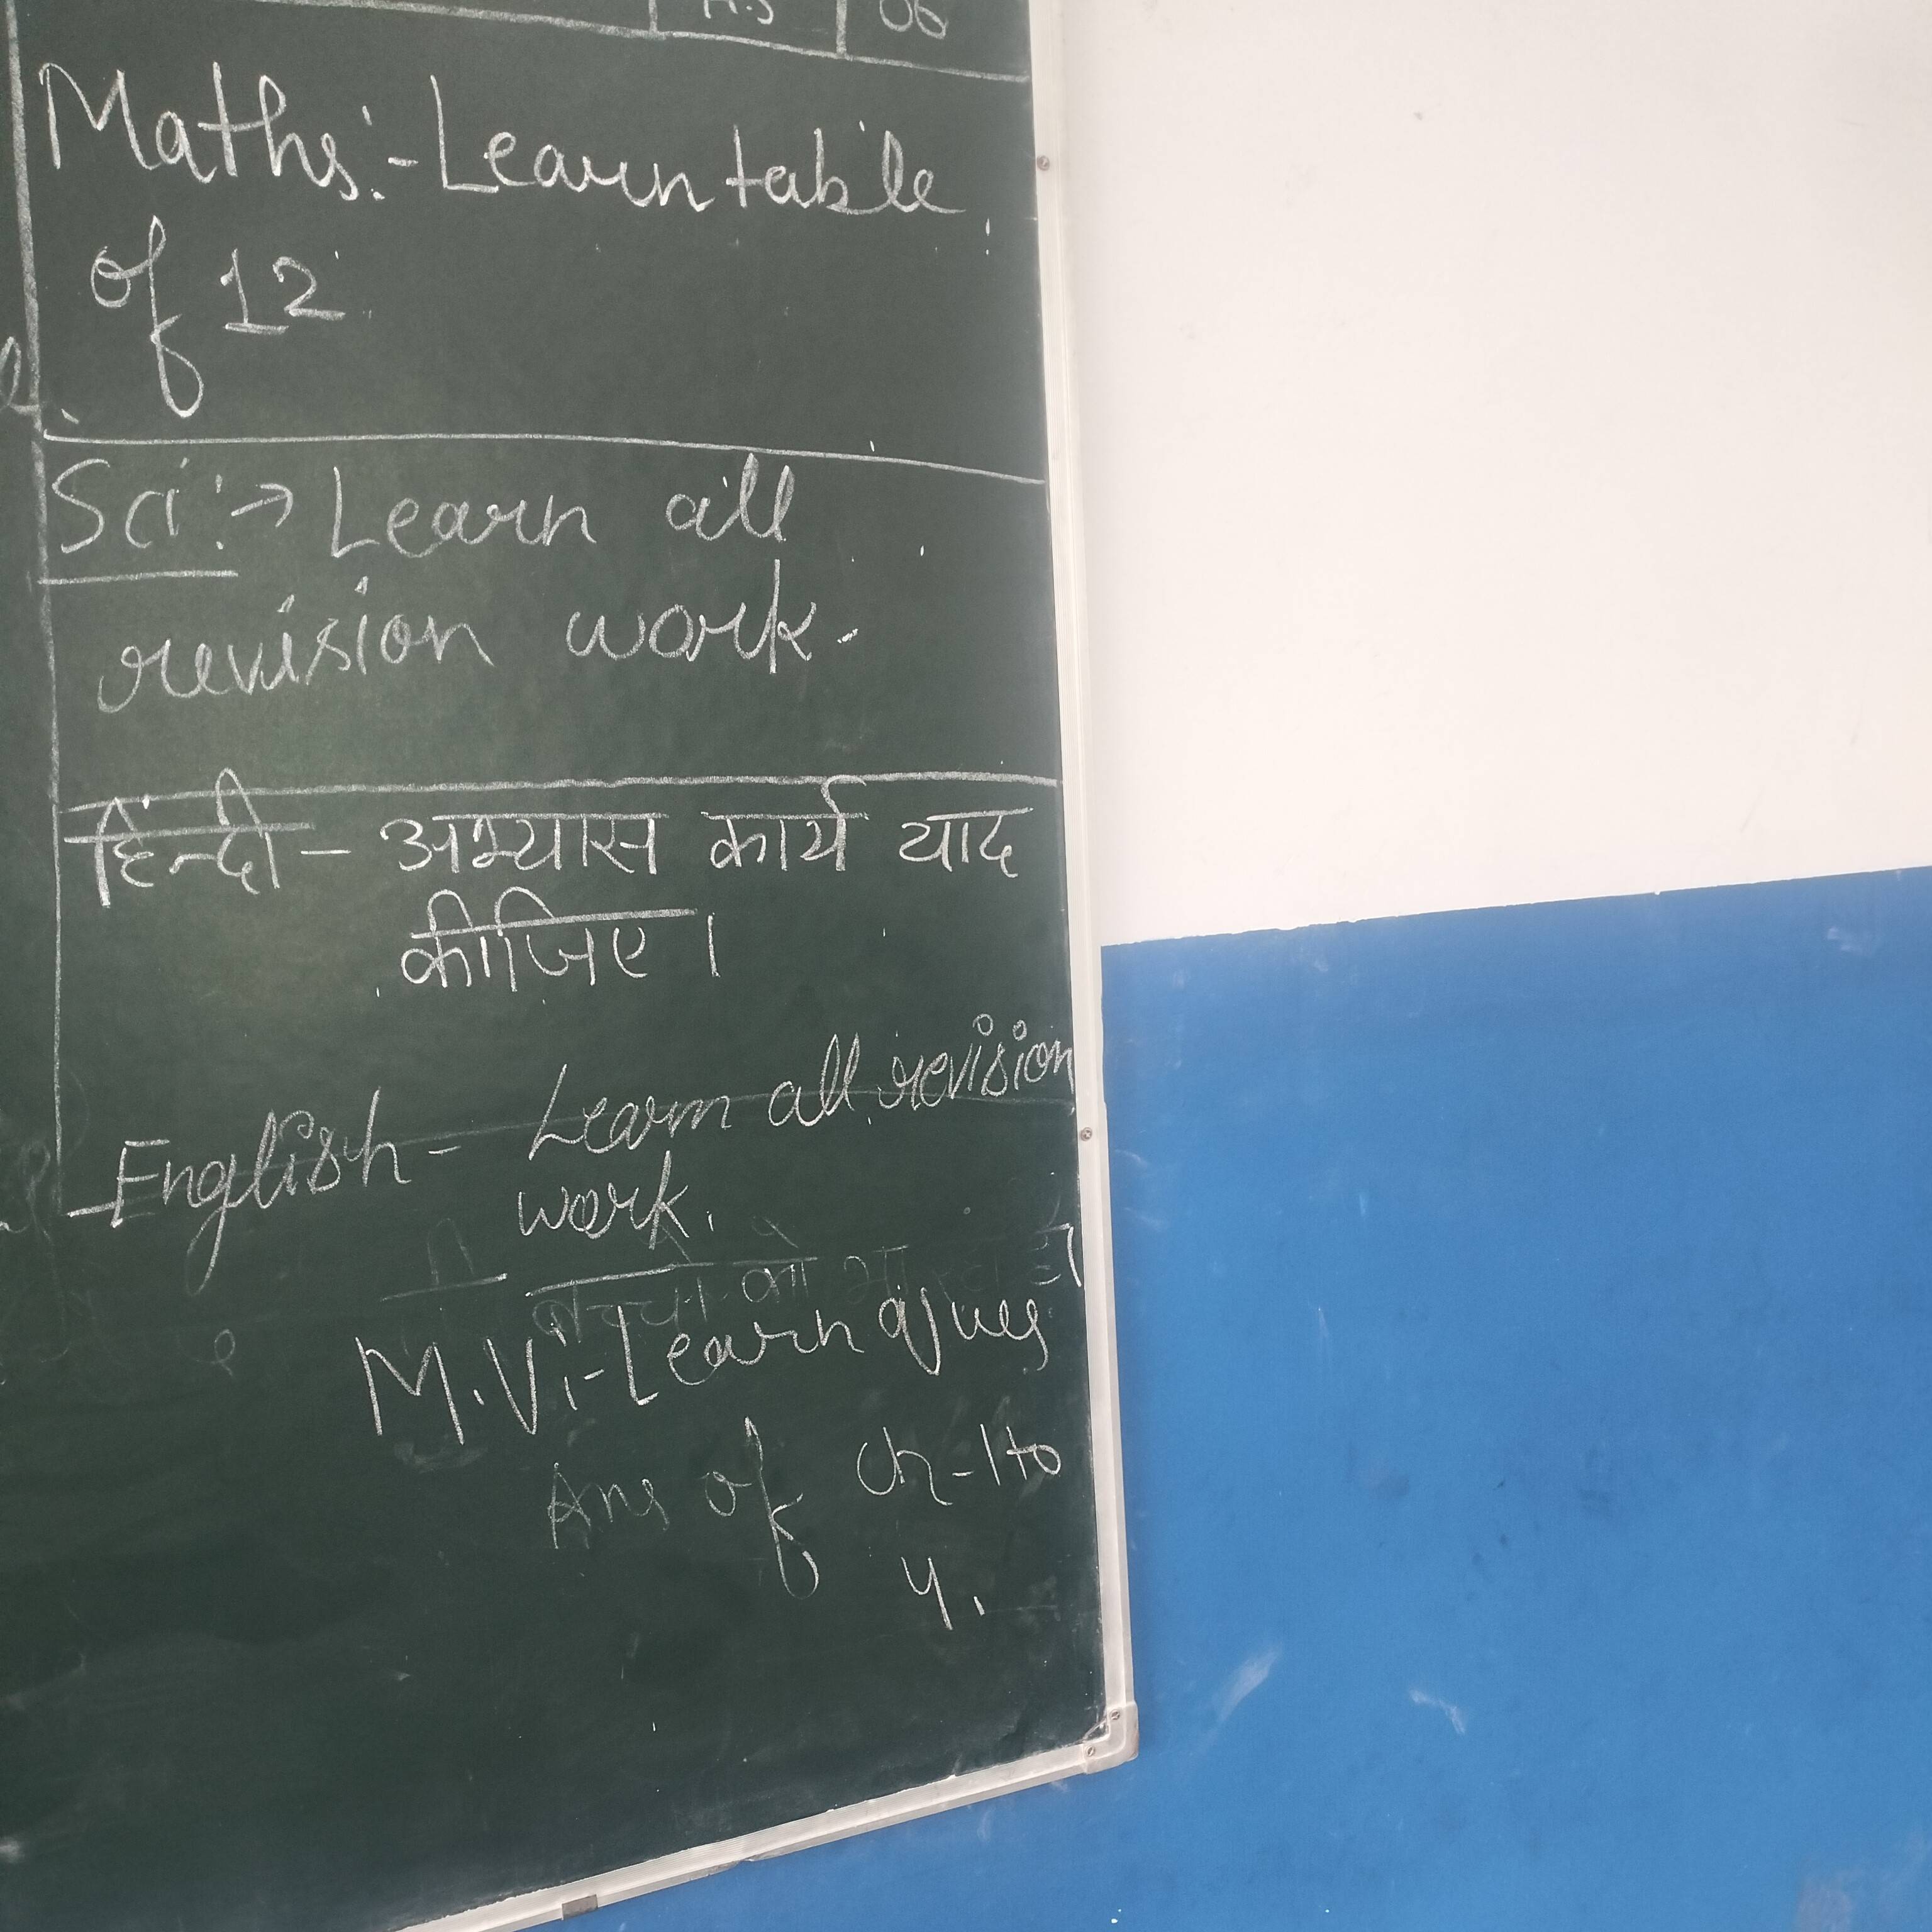 06
Maths:- Learn table
of 12
Sci:→ Learn all
revision work.
हिन्दी - अभ्यास कार्य याद
कीजिए।
English - Learn all revision
work.
M.V:- Learn Ques
Ans of Ch-1 to
4.